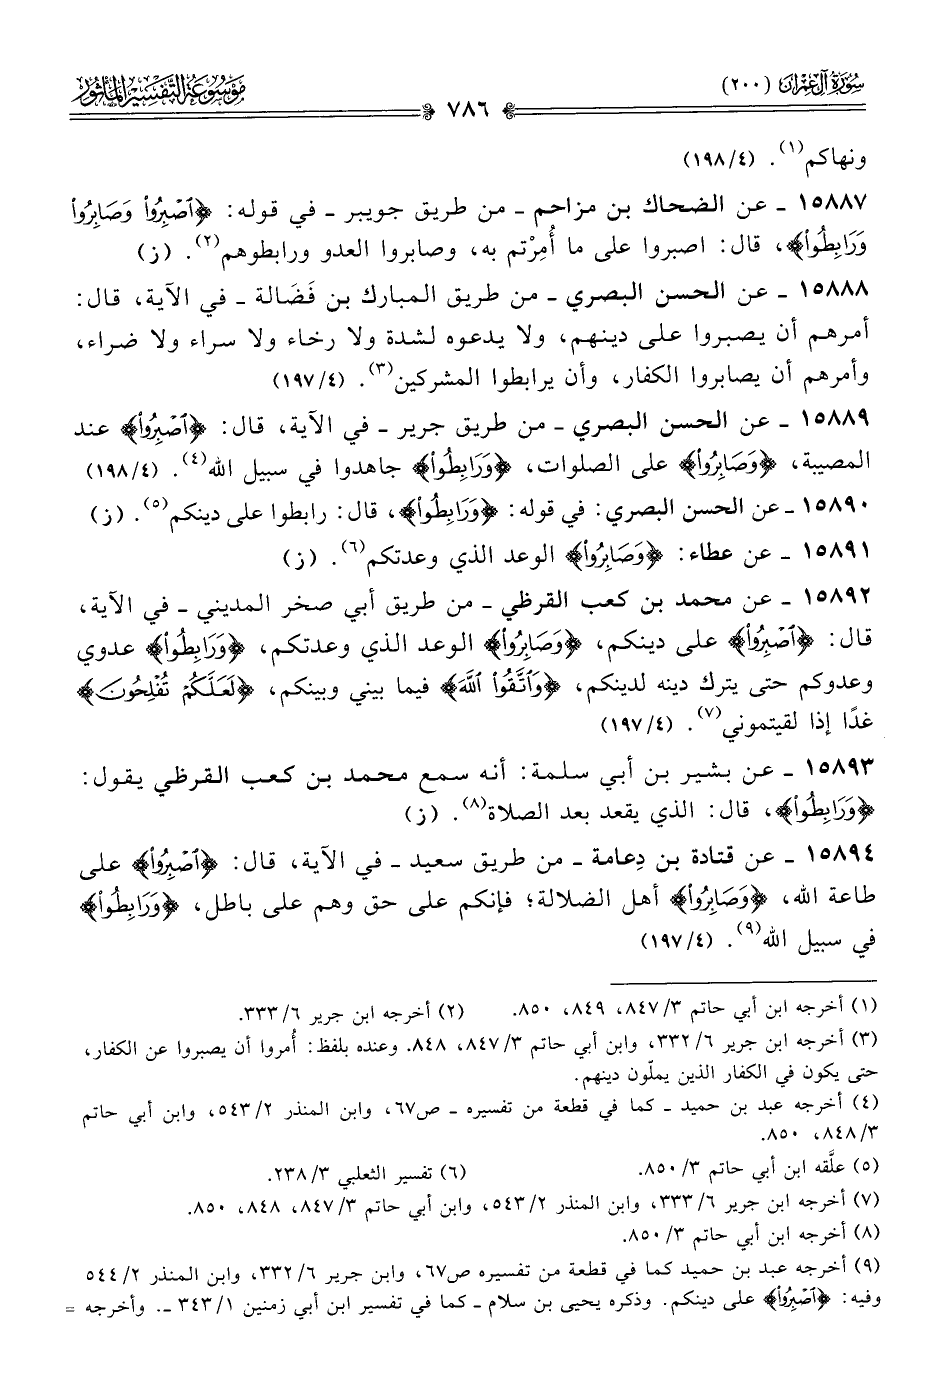 سورة آل عمران (٢٠٠)
موسوعة التفسير المأثور
٧٨٦
ونهاكم(١). (١٩٨/٤)
١٥٨٨٧ ـ عن الضحاك بن مزاحم ـ من طريق جويبر ـ في قوله: ﴿ٱصۡبِرُواْ وَصَابِرُواْ
وَرَابِطُواْ﴾، قال: اصبروا على ما أُمِرْتم به، وصابروا العدو ورابطوهم(٢). (ز)
١٥٨٨٨ ـ عن الحسن البصري ـ من طريق المبارك بن فَضَالة ـ في الآية، قال:
أمرهم أن يصبروا على دينهم، ولا يدعوه لشدة ولا رخاء ولا سراء ولا ضراء،
وأمرهم أن يصابروا الكفار، وأن يرابطوا المشركين(٣). (١٩٧/٤)
١٥٨٨٩ ـ عن الحسن البصري ـ من طريق جرير ـ في الآية، قال: ﴿ٱصۡبِرُواْ﴾ عند
المصيبة، ﴿وَصَابِرُواْ﴾ على الصلوات، ﴿وَرَابِطُواْ﴾ جاهدوا في سبيل الله(٤). (١٩٨/٤)
١٥٨٩٠ ـ عن الحسن البصري: في قوله: ﴿وَرَابِطُواْ﴾، قال: رابطوا على دينكم(٥). (ز)
١٥٨٩١ ـ عن عطاء: ﴿وَصَابِرُواْ﴾ الوعد الذي وعدتكم(٦). (ز)
١٥٨٩٢ ـ عن محمد بن كعب القرظي ـ من طريق أبي صخر المديني ـ في الآية،
قال: ﴿ٱصۡبِرُواْ﴾ على دينكم، ﴿وَصَابِرُواْ﴾ الوعد الذي وعدتكم، ﴿وَرَابِطُواْ﴾ عدوي
وعدوكم حتى يترك دينه لدينكم، ﴿وَٱتَّقُواْ ٱللَّهَ﴾ فيما بيني وبينكم، ﴿لَعَلَّكُمۡ تُفۡلِحُونَ﴾
غدًا إذا لقيتموني(٧). (١٩٧/٤)
١٥٨٩٣ ـ عن بشير بن أبي سلمة: أنه سمع محمد بن كعب القرظي يقول:
﴿وَرَابِطُواْ﴾، قال: الذي يقعد بعد الصلاة(٨). (ز)
١٥٨٩٤ ـ عن قتادة بن دِعامة ـ من طريق سعيد ـ في الآية، قال: ﴿ٱصۡبِرُواْ﴾ على
طاعة الله، ﴿وَصَابِرُواْ﴾ أهل الضلالة؛ فإنكم على حق وهم على باطل، ﴿وَرَابِطُواْ﴾
في سبيل الله(٩). (١٩٧/٤)
(١) أخرجه ابن أبي حاتم ٣/ ٨٤٧، ٨٤٩، ٨٥٠. (٢) أخرجه ابن جرير ٦/ ٣٣٣.
(٣) أخرجه ابن جرير ٦/ ٣٣٢، وابن أبي حاتم ٣/ ٨٤٧، ٨٤٨. وعنده بلفظ: أُمروا أن يصبروا عن الكفار،
حتى يكون في الكفار الذين يملّون دينهم.
(٤) أخرجه عبد بن حميد ـ كما في قطعة من تفسيره ـ ص٦٧، وابن المنذر ٢/ ٥٤٣، وابن أبي حاتم
٣/ ٨٤٨، ٨٥٠.
(٥) علَّقه ابن أبي حاتم ٣/ ٨٥٠. (٦) تفسير الثعلبي ٣/ ٢٣٨.
(٧) أخرجه ابن جرير ٦/ ٣٣٣، وابن المنذر ٢/ ٥٤٣، وابن أبي حاتم ٣/ ٨٤٧، ٨٤٨، ٨٥٠.
(٨) أخرجه ابن أبي حاتم ٣/ ٨٥٠.
(٩) أخرجه عبد بن حميد كما في قطعة من تفسيره ص٦٧، وابن جرير ٦/ ٣٣٢، وابن المنذر ٢/ ٥٤٤
وفيه: ﴿ٱصۡبِرُواْ﴾ على دينكم. وذكره يحيى بن سلام ـ كما في تفسير ابن أبي زمنين ١/ ٣٤٣ ـ. وأخرجه =